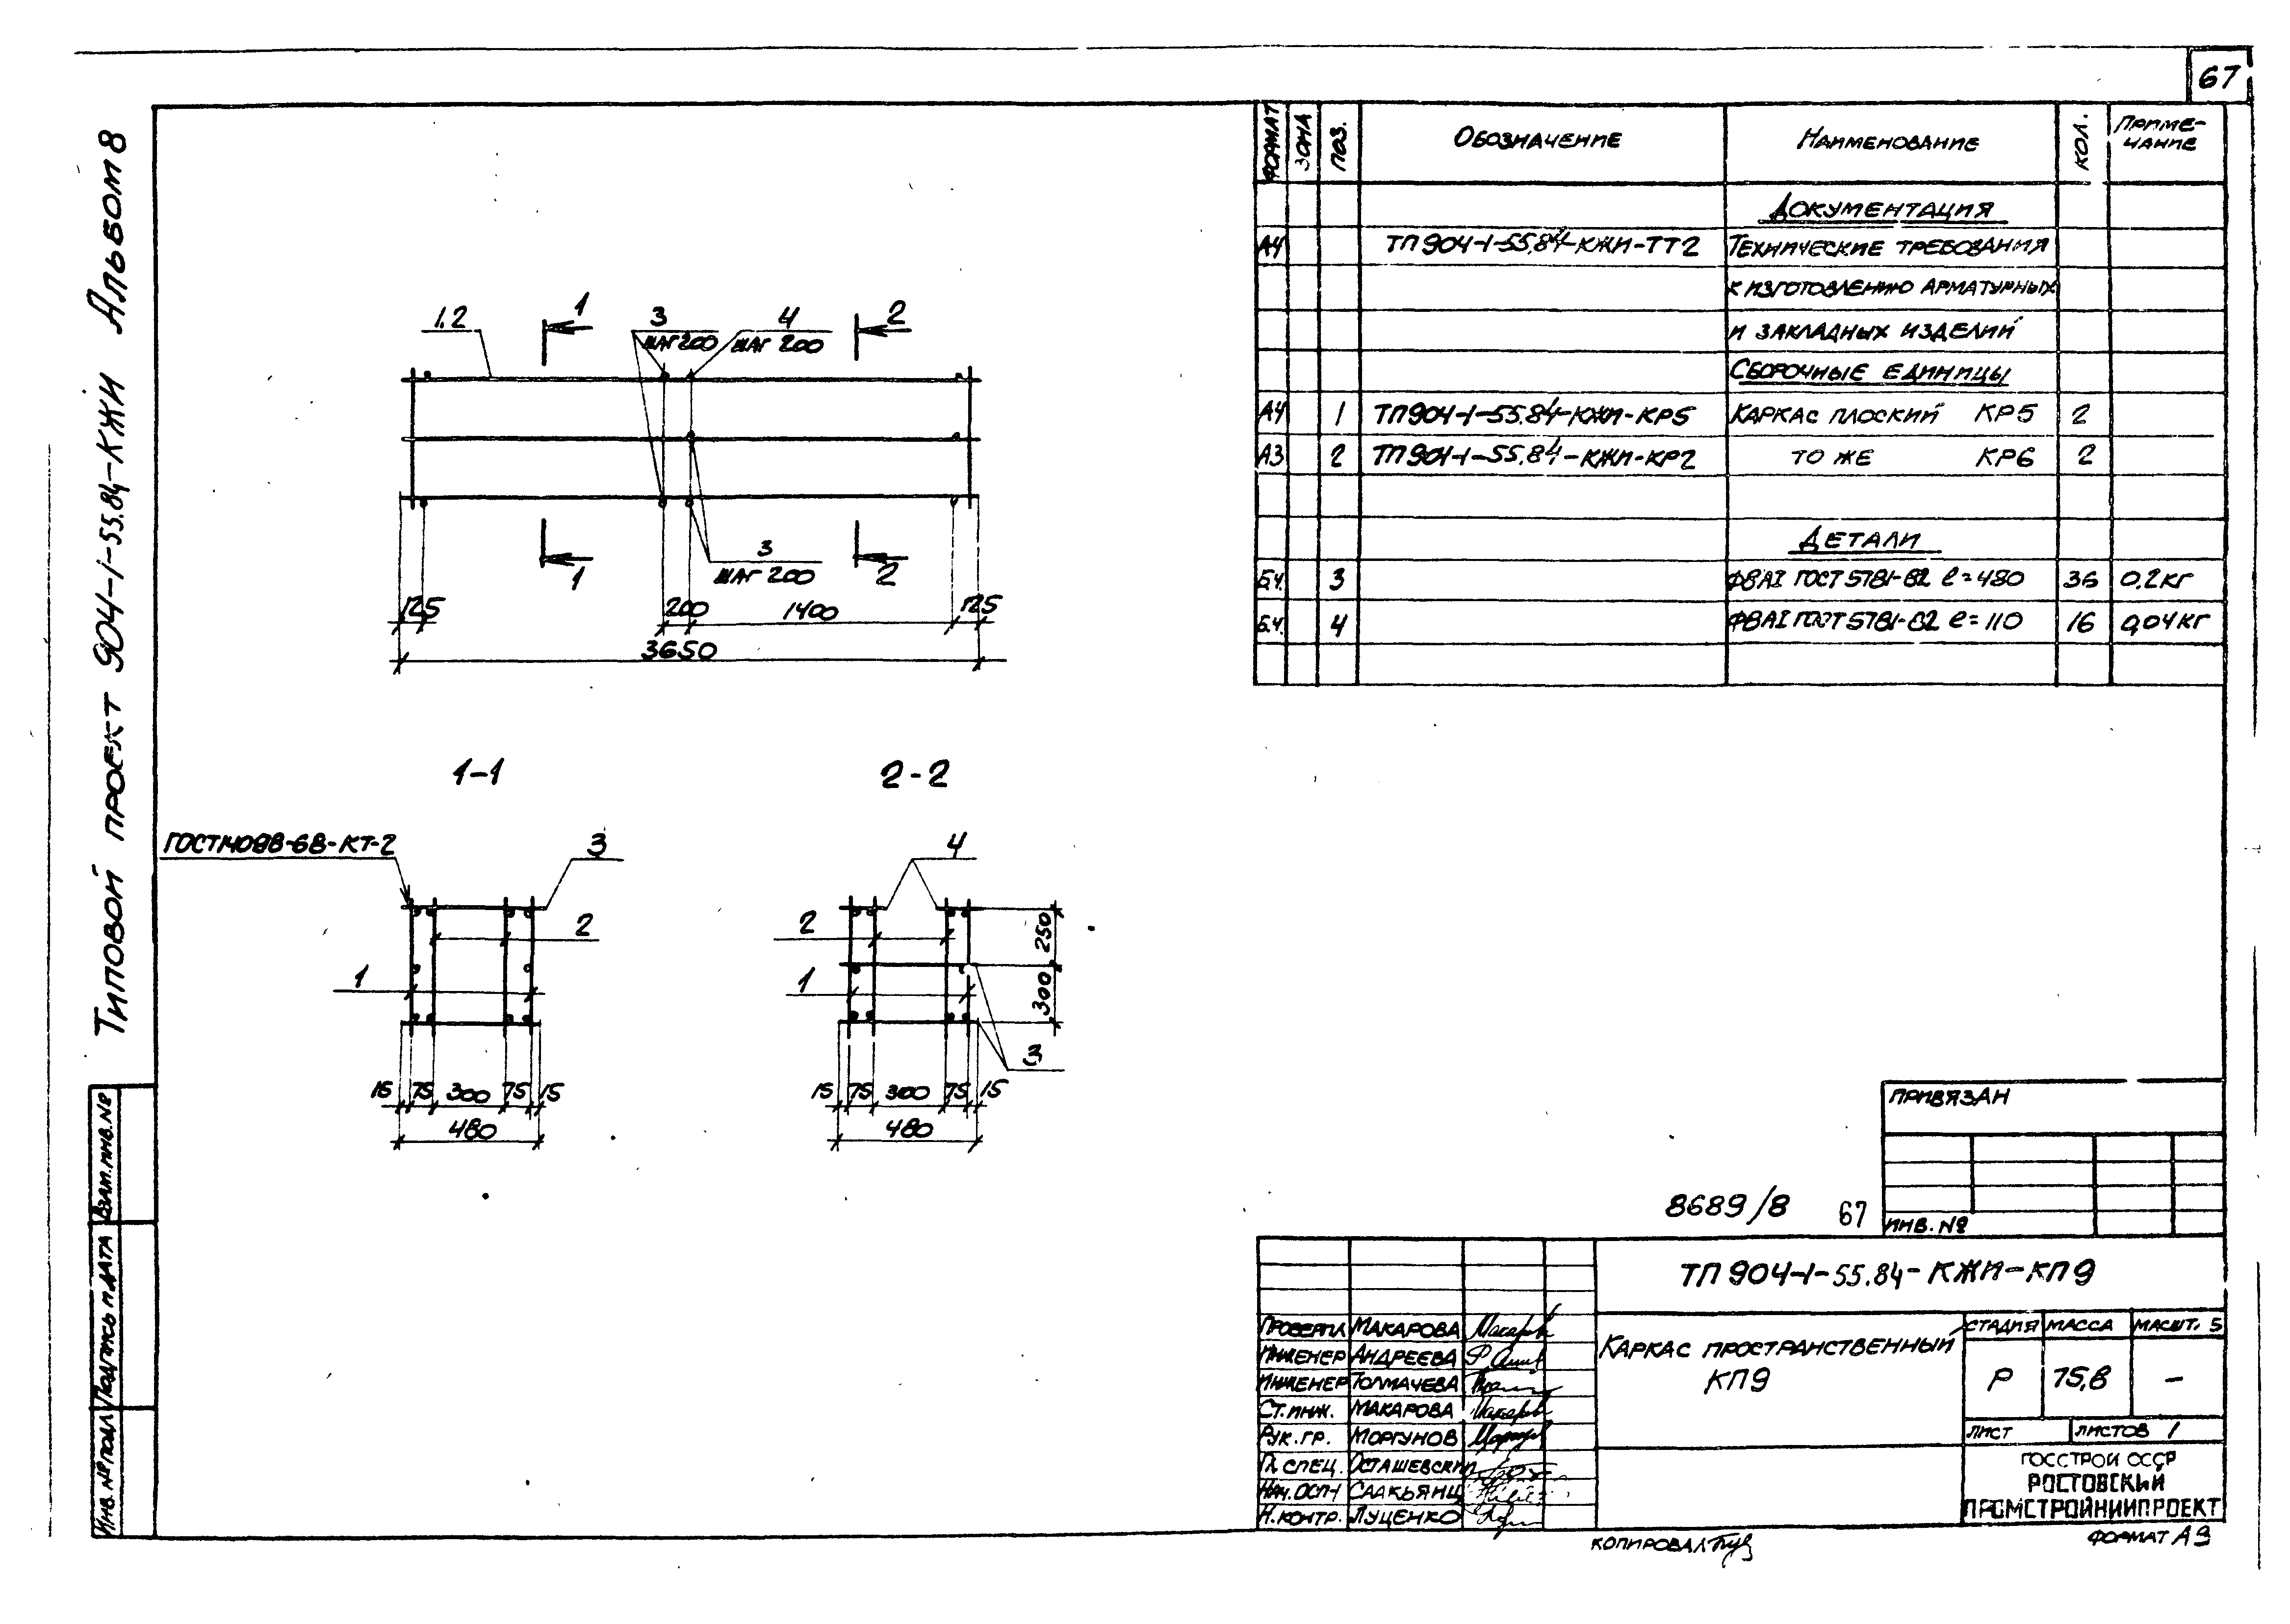 67
Типовой проект 904-1-55.84-КЖИ Альбом 8
ФОРМАТ ЗОНА ПОЗ. ОБОЗНАЧЕНИЕ НАИМЕНОВАНИЕ КОЛ. ПРИМЕ-
ЧАНИЕ
ДОКУМЕНТАЦИЯ
А4 ТП904-1-55.84-КЖИ-ТТ2 ТЕХНИЧЕСКИЕ ТРЕБОВАНИЯ
К ИЗГОТОВЛЕНИЮ АРМАТУРНЫХ
И ЗАКЛАДНЫХ ИЗДЕЛИЙ
СБОРОЧНЫЕ ЕДИНИЦЫ
А4 1 ТП904-1-55.84-КЖИ-КР5 КАРКАС ПЛОСКИЙ КР5 2
А3 2 ТП904-1-55.84-КЖИ-КР2 ТО ЖЕ КР6 2
ДЕТАЛИ
Б.Ч. 3 Ф8АI ГОСТ 5781-82 ℓ=480 36 0.2КГ
Б.Ч. 4 Ф8АI ГОСТ 5781-82 ℓ=110 16 0,04КГ
1.2 1 3 4 2
ШАГ 200 ШАГ 200
3
ШАГ 200
1 2
125 200 1400 125
3650
1-1
ГОСТ14098-68-КТ-2 3
2
1
15 75 300 75 15
480
2-2
4
2
1
250
300
3
15 75 300 75 15
480
ПРИВЯЗАН
ИНВ. №
8689/8 67
ТП904-1-55.84-КЖИ-КП9
ПРОВЕРИЛ МАКАРОВА
ИНЖЕНЕР АНДРЕЕВА
ИНЖЕНЕР ТОЛМАЧЕВА
СТ.ИНЖ. МАКАРОВА
РУК.ГР. МОРГУНОВ
ГЛ. СПЕЦ. ОСТАШЕВСКИЙ
НАЧ.ОСП-1 СААКЬЯНЦ
Н.КОНТР. ЛУЦЕНКО
КАРКАС ПРОСТРАНСТВЕННЫЙ
КП9
СТАДИЯ МАССА МАСШТ. Б
Р 75,8 –
ЛИСТ ЛИСТОВ 1
ГОССТРОЙ СССР
РОСТОВСКИЙ
ПРОМСТРОЙНИИПРОЕКТ
КОПИРОВАЛ
ФОРМАТ А3
ИНВ. № ПОДЛ. ПОДПИСЬ И ДАТА ВЗАМ.ИНВ.№